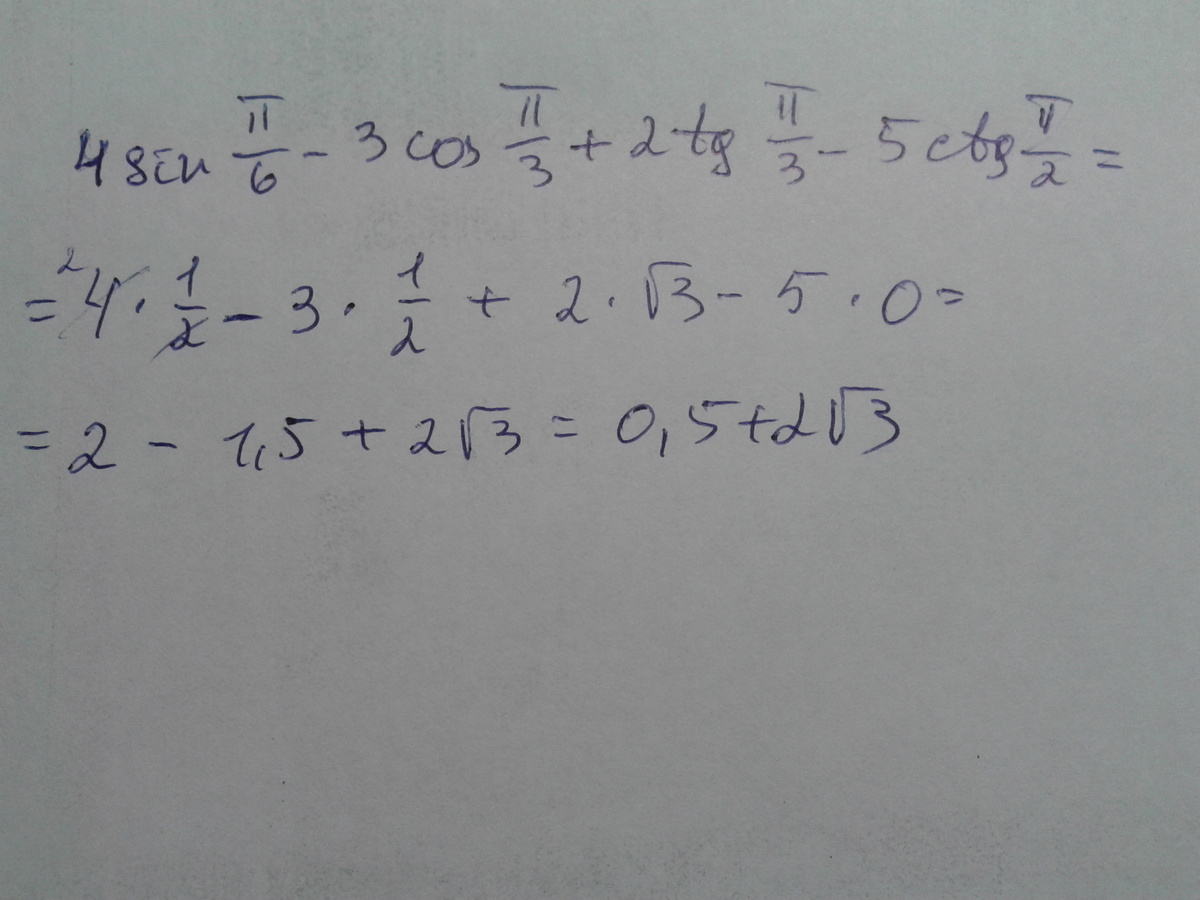 4 sin π/6 - 3 cos π/3 + 2 tg π/3 - 5 ctg π/2 =
= ²4 · 1/2 - 3 · 1/2 + 2 · √3 - 5 · 0 =
= 2 - 1,5 + 2√3 = 0,5 + 2√3